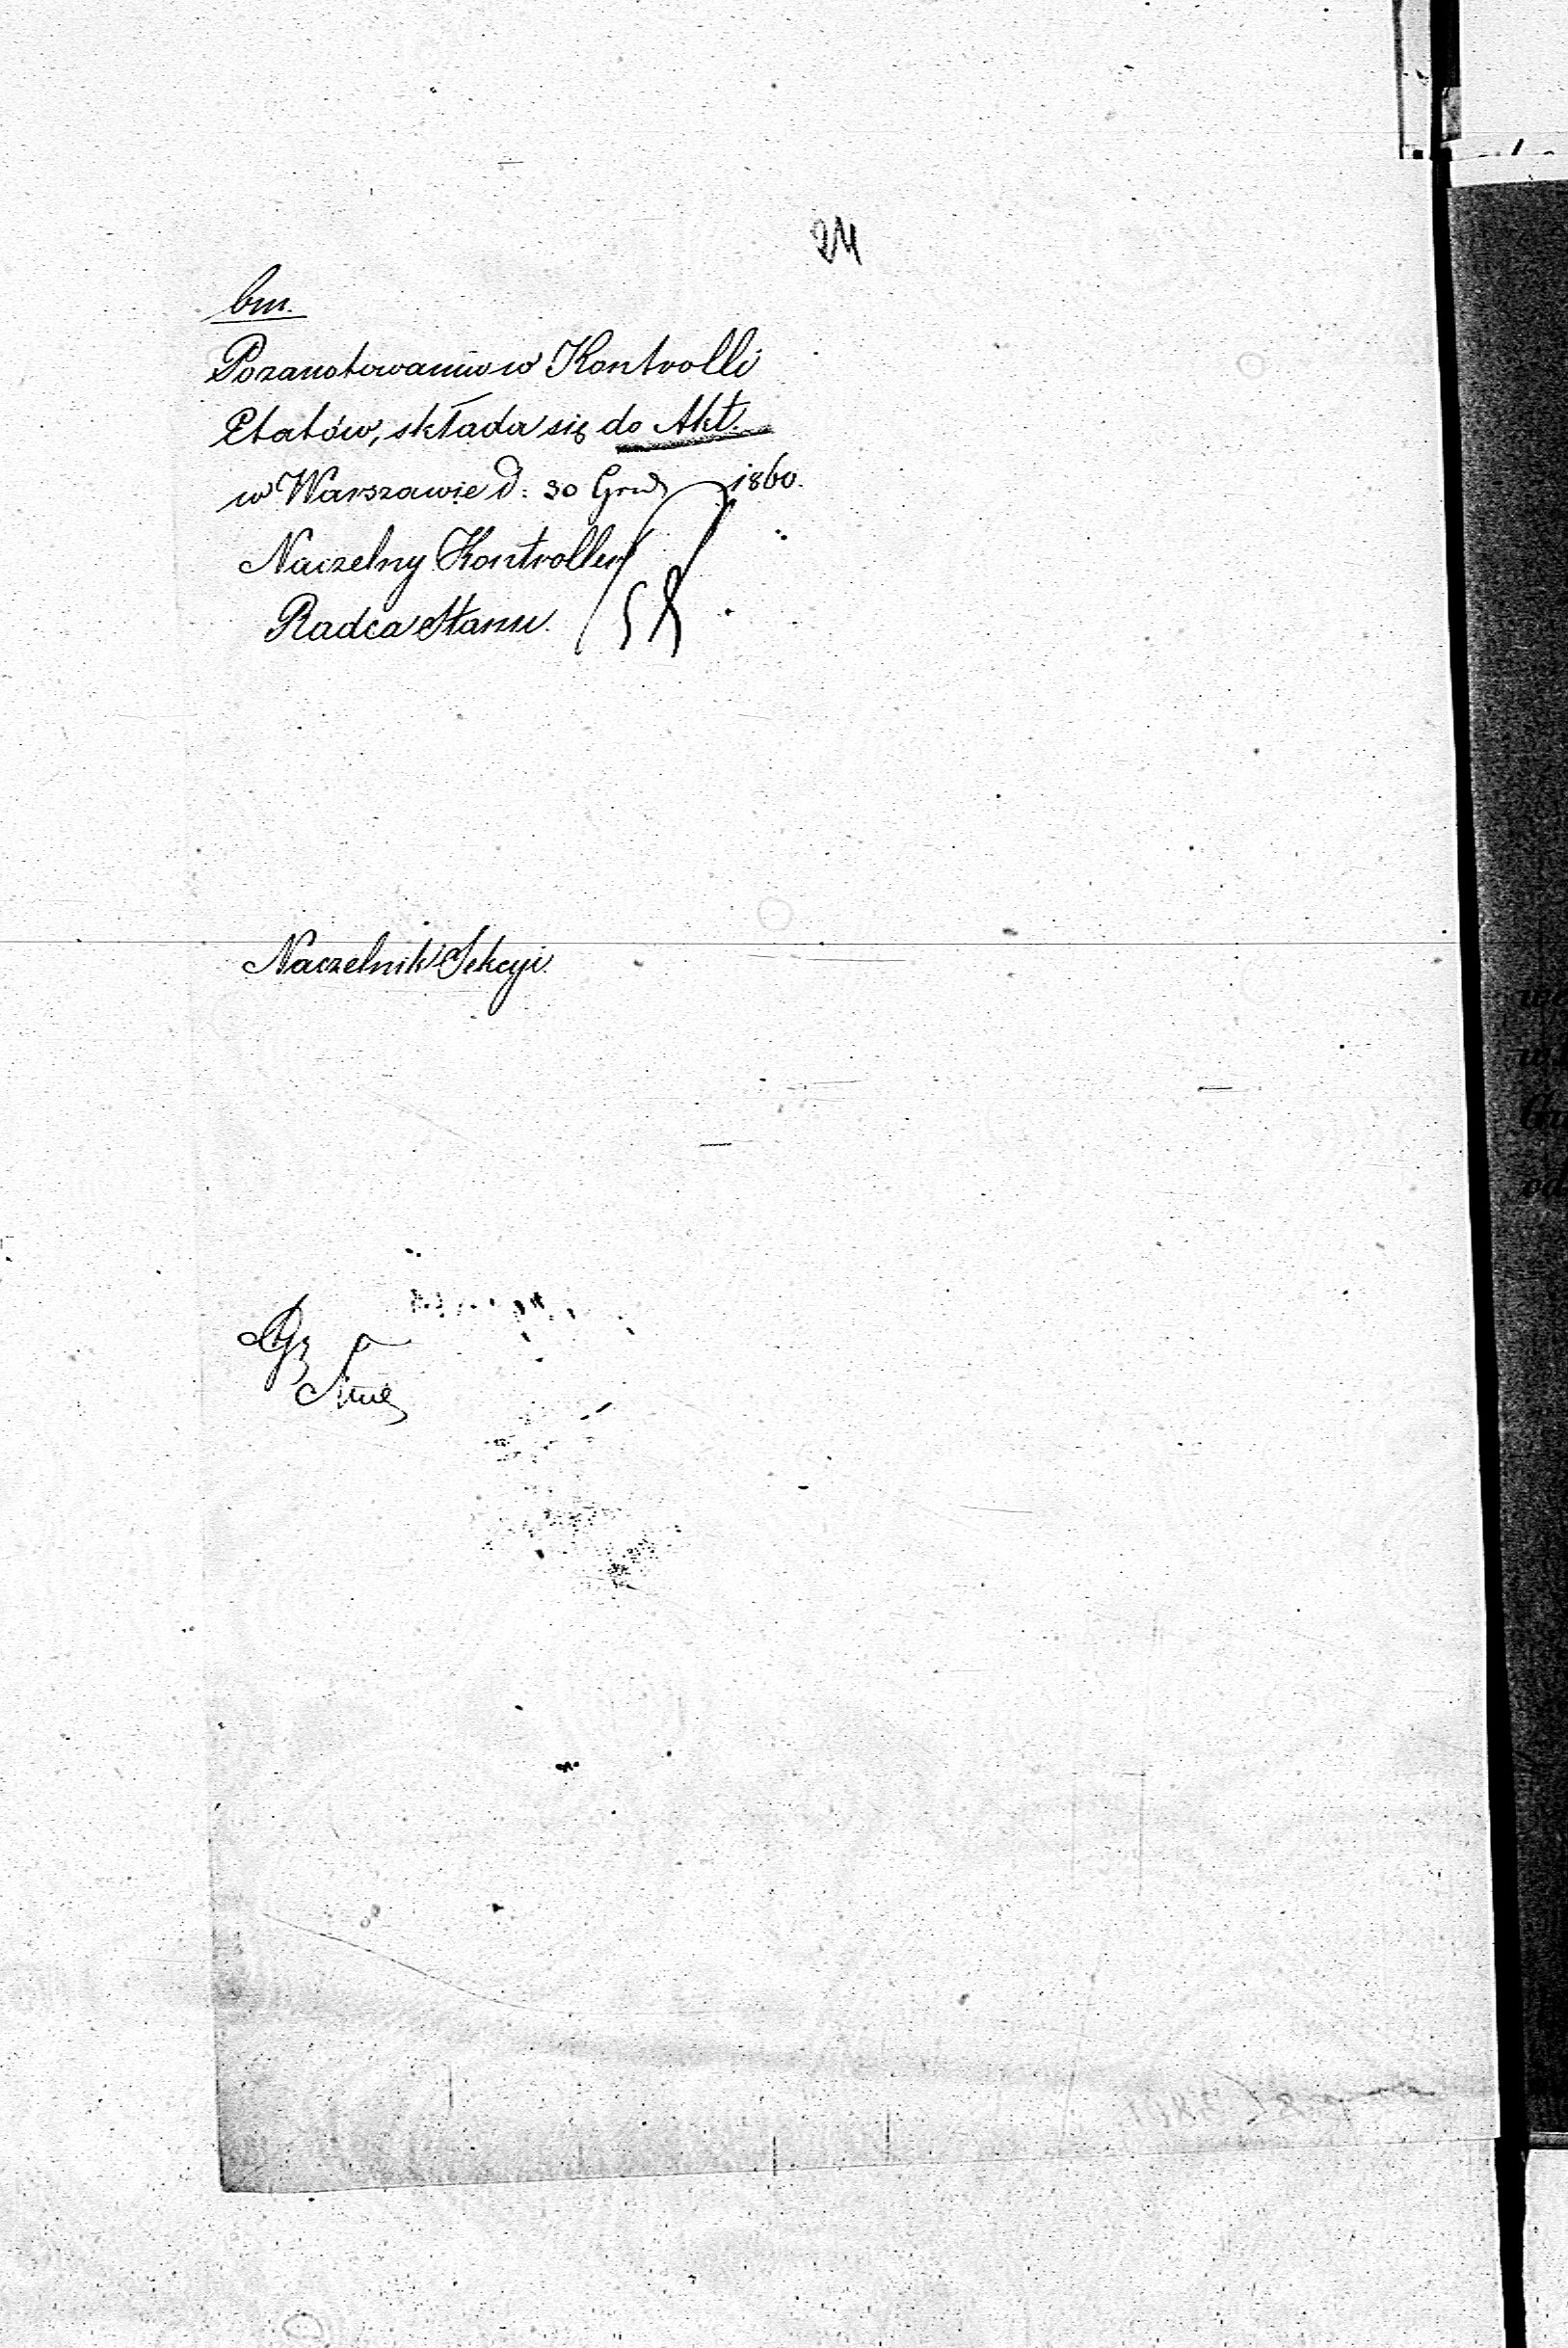 24
bm.
Pozanotowaniu w Kontrolli
Etatów, składa się do Akt.
w Warszawie d: 30 Grud 1860.
Naczelny Kontroller
Radca Stanu.
Naczelnik Sekcyi.